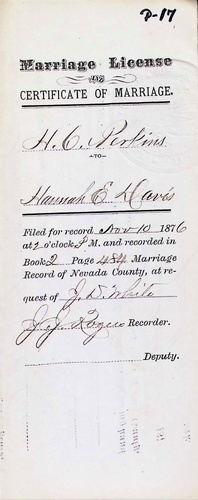 P-17
Marriage License
AND
CERTIFICATE OF MARRIAGE.
H. C. Perkins
-TO-
Hannah E. Davis
Filed for record Nov 10 1876
at 2 o'clock P M. and recorded in
Book 2 Page 484 Marriage
Record of Nevada County, at re-
quest of J. D. White
J. J. Rogers Recorder.
Deputy.